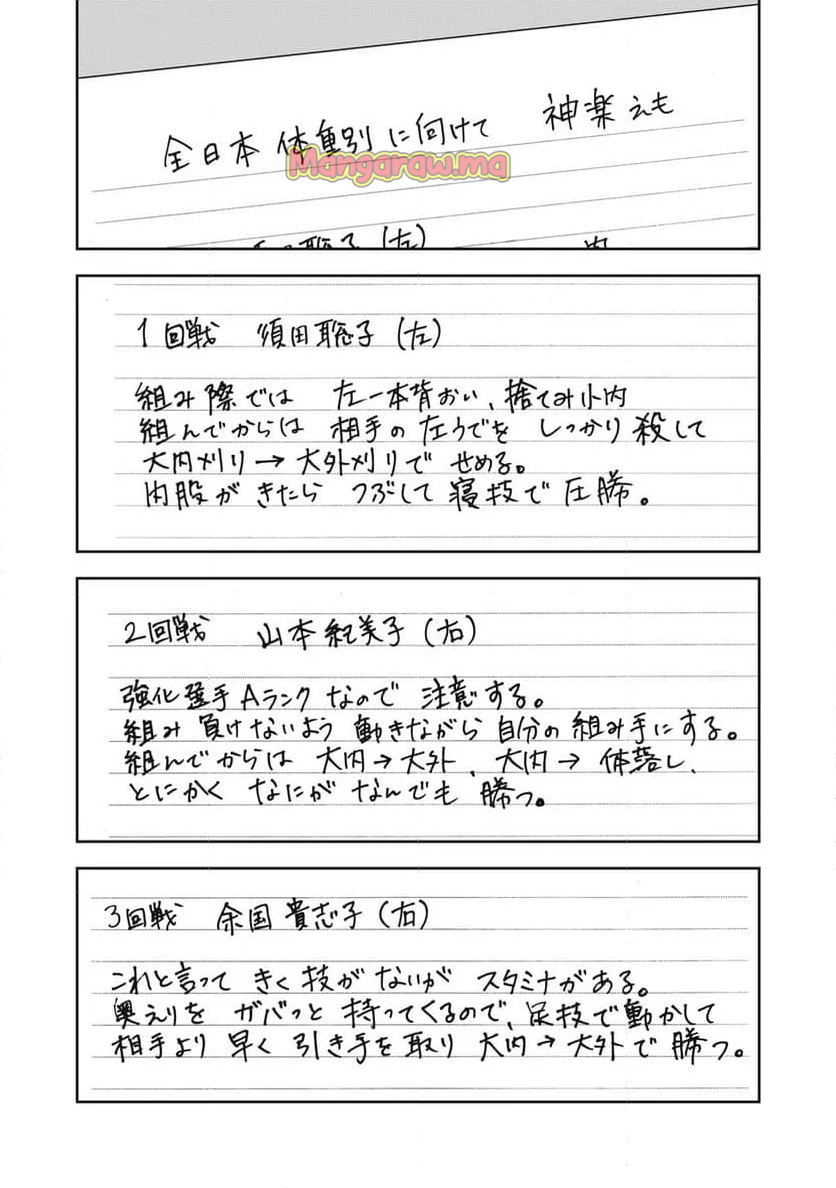 全日本 体重別に向けて 神楽えも
Mangaraw.ma
(左)
1回戦 須田聡子(左)
組み際では 左一本背おい、捨てみ小内
組んでからは 相手の左うでを しっかり殺して
大内刈り→大外刈りで せめる。
内股が きたら つぶして 寝技で 圧勝。
2回戦 山本紀美子(右)
強化選手Aランク なので 注意する。
組み負けないよう 動きながら 自分の組み手にする。
組んでからは 大内→大外、大内→体落し、
とにかく なにが なんでも 勝つ。
3回戦 余国貴志子(右)
これと言って きく技が ないが スタミナがある。
奥えりを ガバっと 持ってくるので、足技で動かして
相手より 早く 引き手を取り 大内→大外で 勝つ。